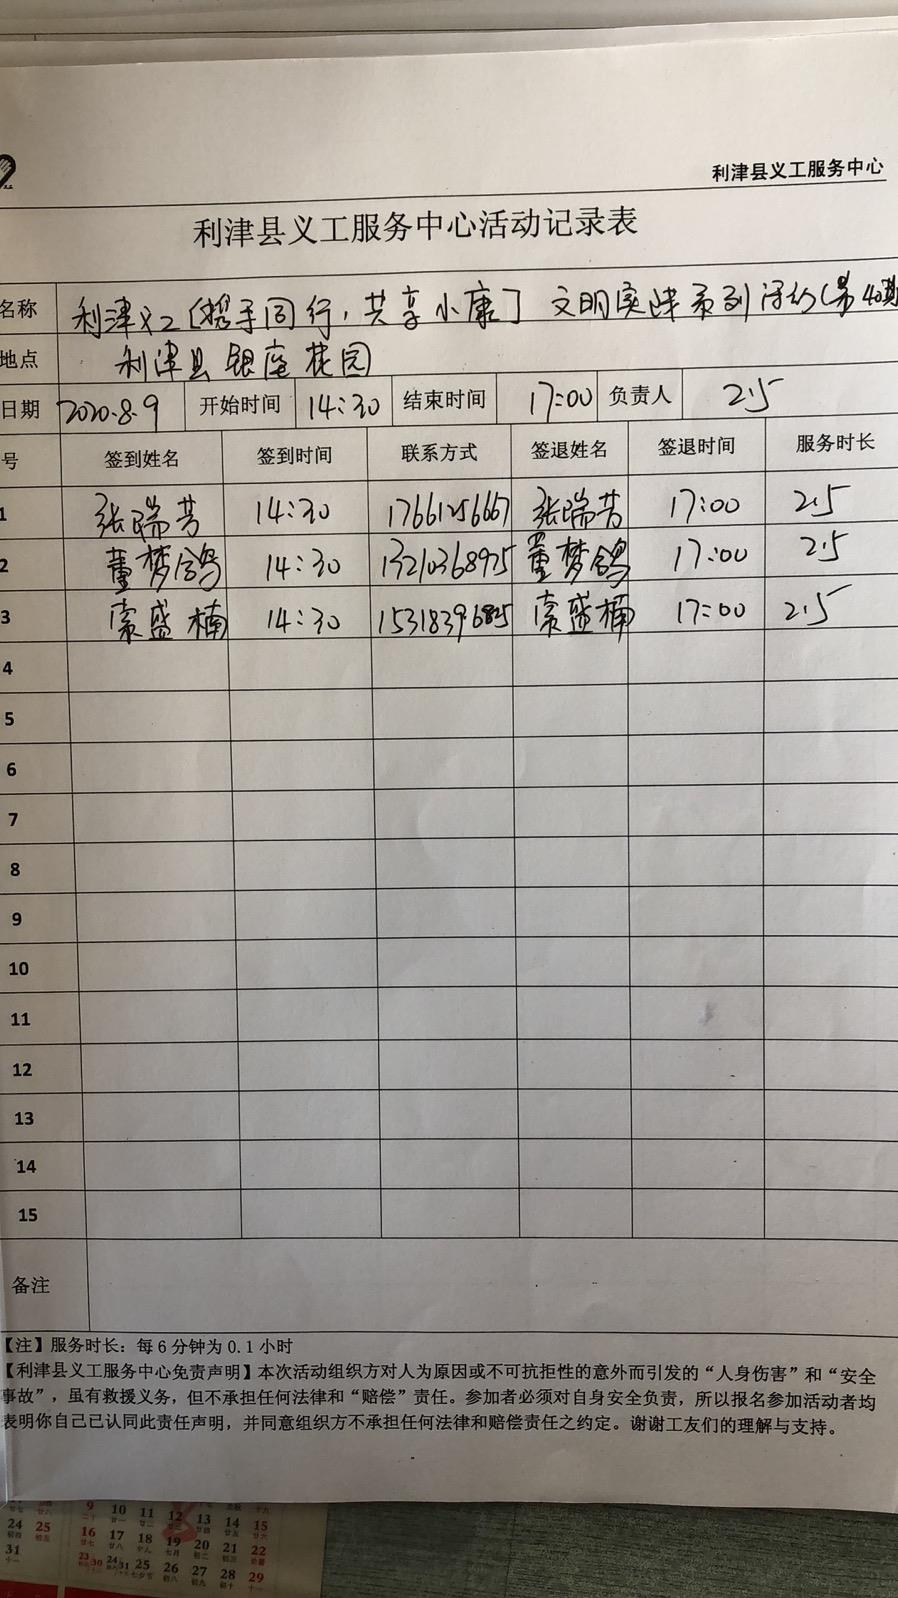 利津县义工服务中心
利津县义工服务中心活动记录表
名称 利津义工[携手同行,共享小康] 文明实践系列活动(第40期
地点 利津县银座花园
日期 2020.8.9 开始时间 14:30 结束时间 17:00 负责人 2.5
号 签到姓名 签到时间 联系方式 签退姓名 签退时间 服务时长
1 张瑞芳 14:30 17661256667 张瑞芳 17:00 2.5
2 董梦鸽 14:30 13210368925 董梦鸽 17:00 2.5
3 索盛楠 14:30 索盛楠 17:00 2.5
4
5
6
7
8
9
10
11
12
13
14
15
备注
【注】服务时长:每6分钟为0.1小时
【利津县义工服务中心免责声明】本次活动组织方对人为原因或不可抗拒性的意外而引发的“人身伤害”和“安全
事故”,虽有救援义务,但不承担任何法律和“赔偿”责任。参加者必须对自身安全负责,所以报名参加活动者均
表明你自己已认同此责任声明,并同意组织方不承担任何法律和赔偿责任之约定。谢谢工友们的理解与支持。
9 10 11 12 13 14 15
24 25 16 17 18 19 20 21 22
31 23 30 24 31 25 26 27 28 29